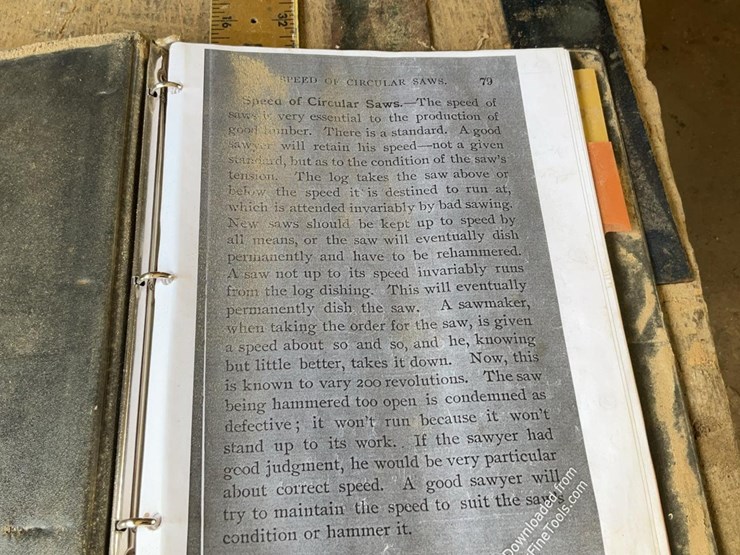 16 32
SPEED OF CIRCULAR SAWS. 79
Speed of Circular Saws.—The speed of
saws is very essential to the production of
good lumber. There is a standard. A good
sawyer will retain his speed—not a given
standard, but as to the condition of the saw's
tension. The log takes the saw above or
below the speed it is destined to run at,
which is attended invariably by bad sawing.
New saws should be kept up to speed by
all means, or the saw will eventually dish
permanently and have to be rehammered.
A saw not up to its speed invariably runs
from the log dishing. This will eventually
permanently dish the saw. A sawmaker,
when taking the order for the saw, is given
a speed about so and so, and he, knowing
but little better, takes it down. Now, this
is known to vary 200 revolutions. The saw
being hammered too open is condemned as
defective; it won't run because it won't
stand up to its work. If the sawyer had
good judgment, he would be very particular
about correct speed. A good sawyer will
try to maintain the speed to suit the saw's
condition or hammer it.
Downloaded from
FineTools.com